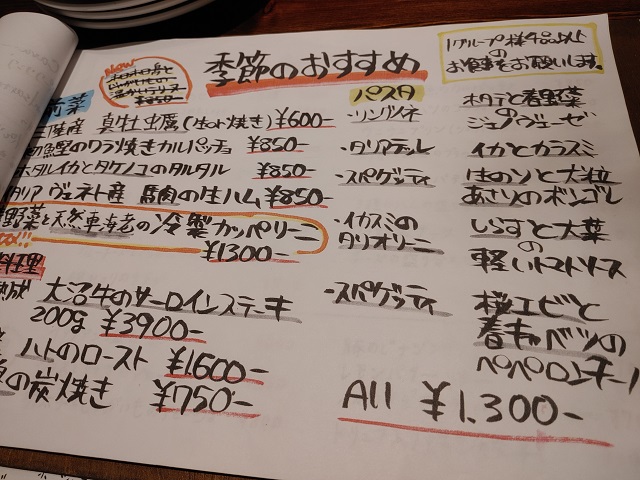 季節のおすすめ
1グループ様4品以上
の
お食事をお願いします。
New
¥850-
前菜
三陸産 真牡蠣(生or焼き)¥600-
初鰹のワラ焼きカルパッチョ ¥850-
ホタルイカとタケノコのタルタル ¥850-
イタリア ヴェネト産 馬肉の生ハム ¥850-
春野菜と天然車海老の冷製カッペリーニ
¥1300-
料理
大沼牛のサーロインステーキ
200g ¥3900-
ハトのロースト ¥1.600-
の炭焼き ¥750-
パスタ
・リングイネ
ホタテと春野菜
の
ジェノヴェーゼ
・タリアテッレ
イカとカラスミ
・スパゲッティ
はのりと大粒
あさりのボンゴレ
・イカスミの
タリオリーニ
しらすと大葉
の
軽いトマトソース
・スパゲッティ
桜エビと
春キャベツの
ペペロンチーノ
All ¥1.300-